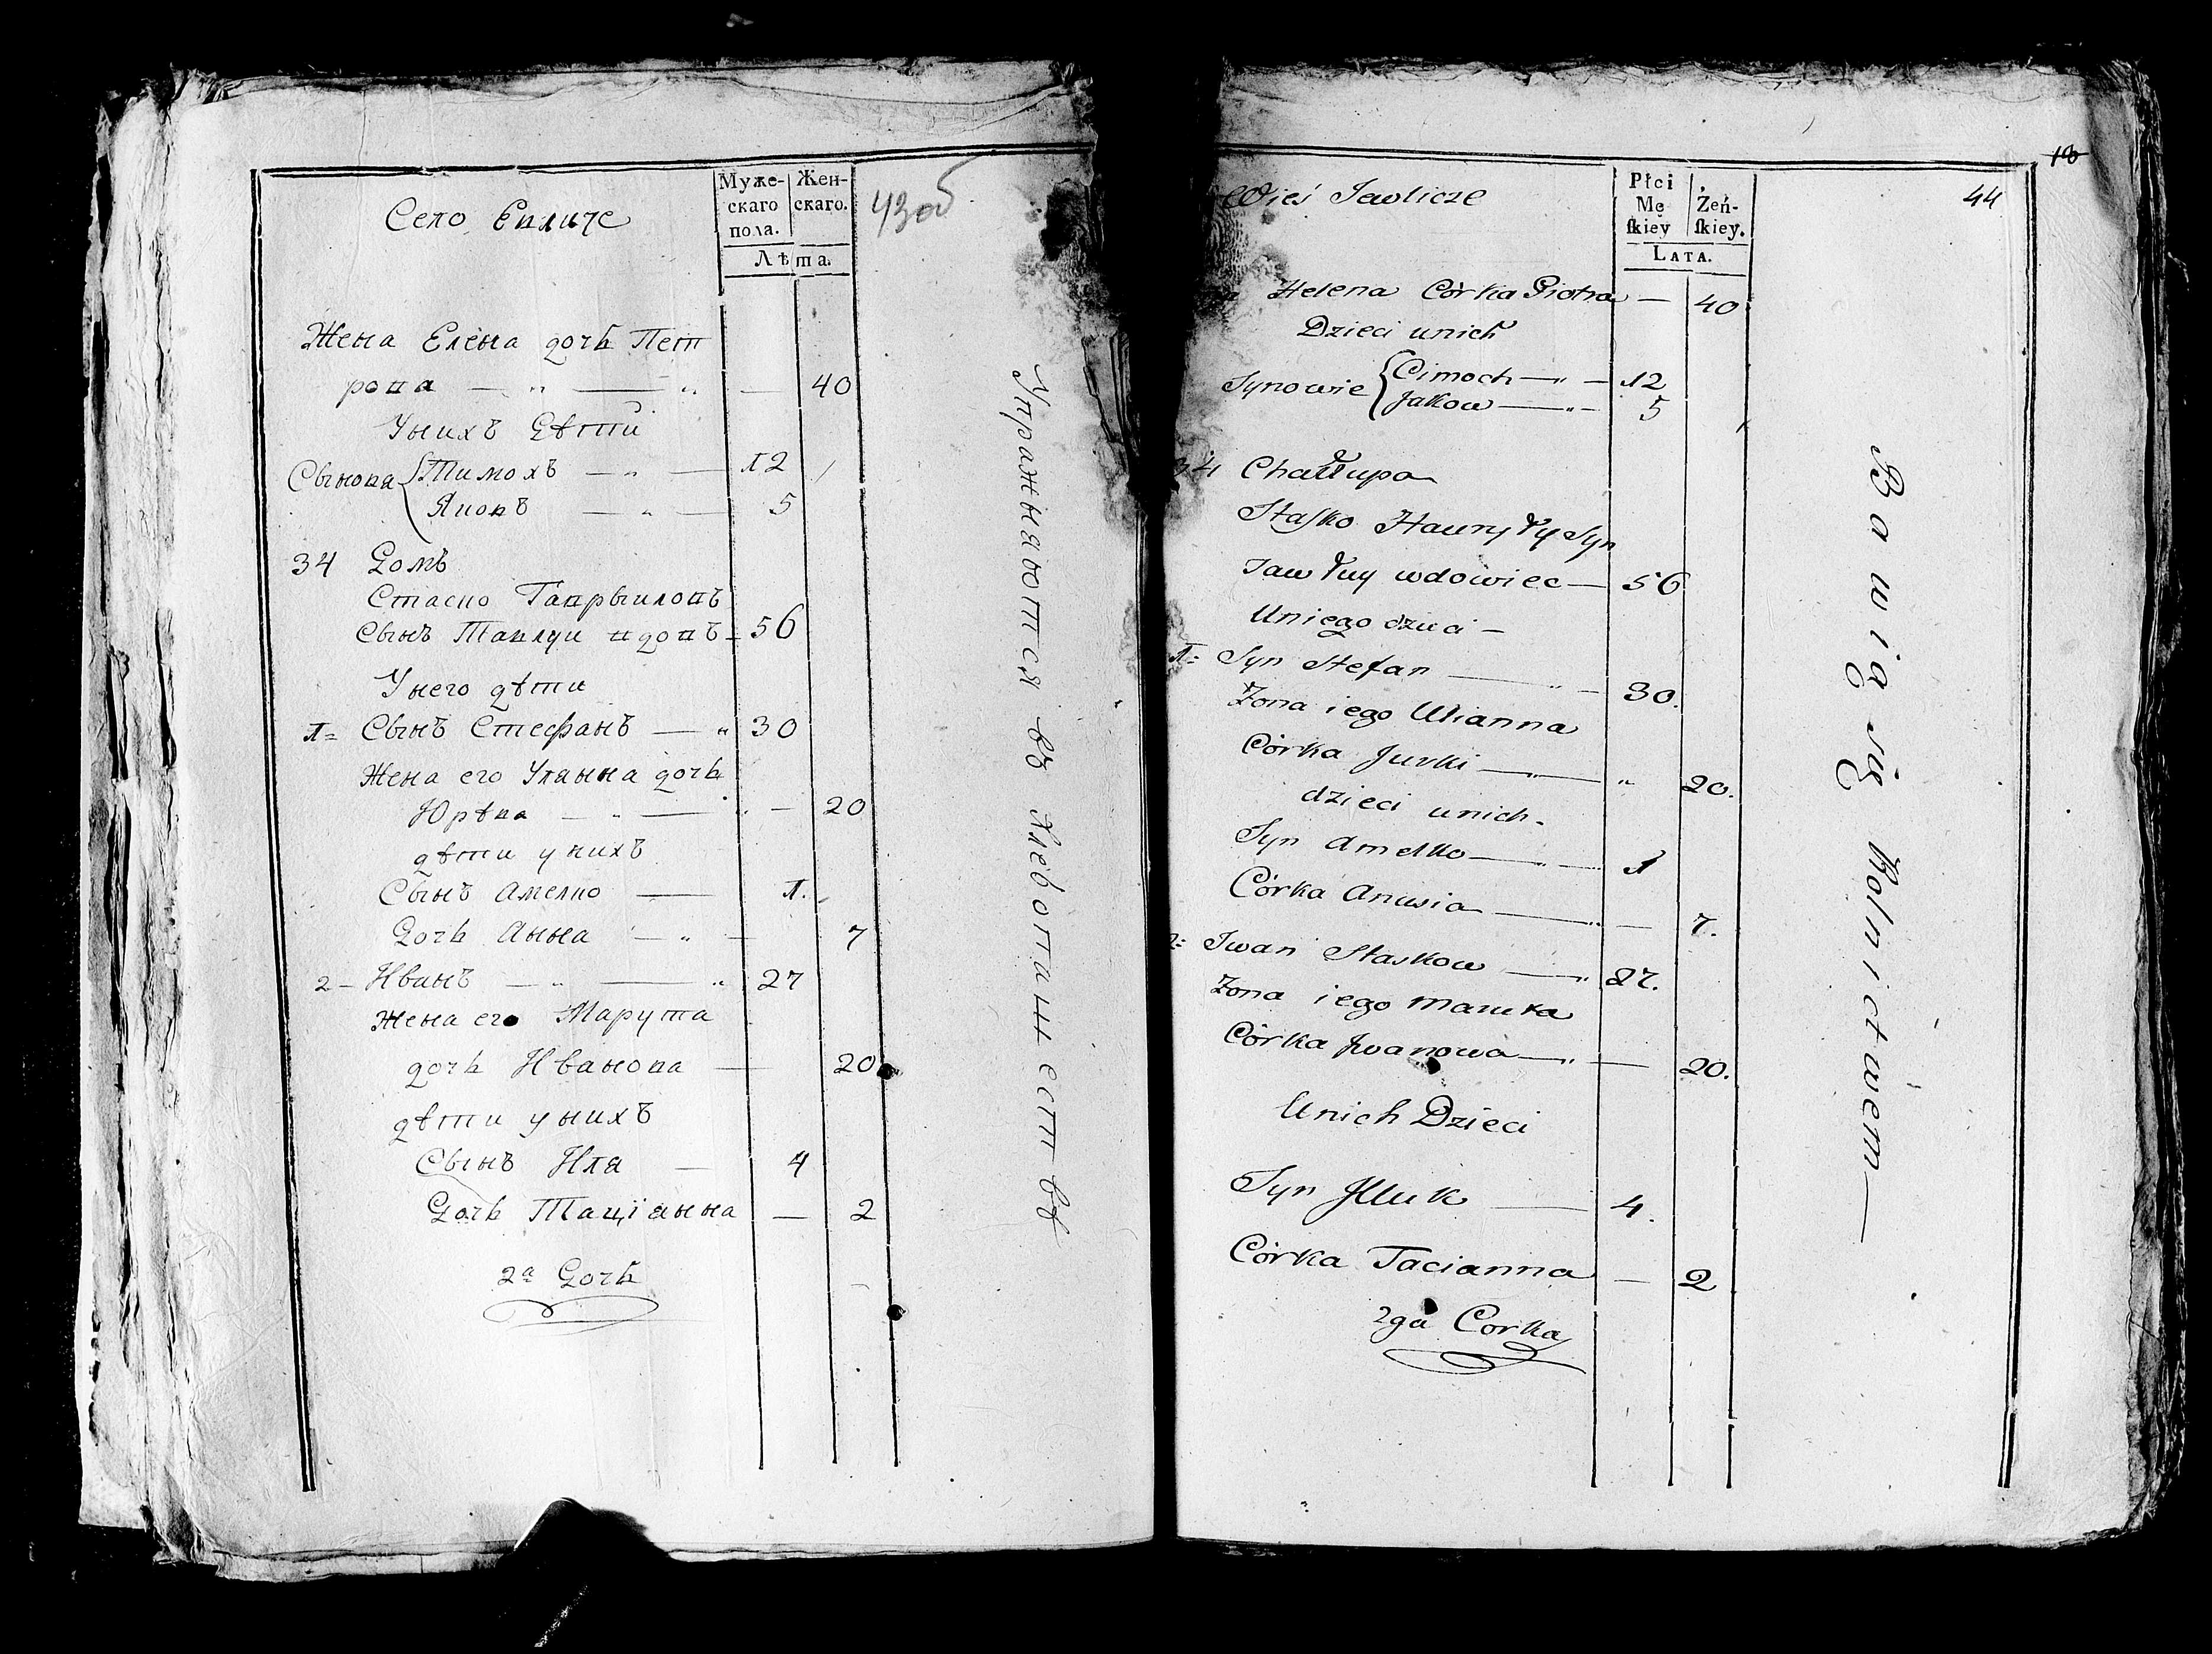 Село Евличе
Муже-
скаго
пола.
Жен-
скаго.
Лѣта.
43об
Жена Елена дочь Пет
рова — " — " — 40
У нихъ Дѣти
Сынова { Тимохъ — " — 12
Яковъ — " — 5
34 Домъ
Стаско Гаврыловъ
Сынъ Тавлуи вдовъ — 56
У него дѣти
1= Сынъ Стефанъ — " 30
Жена его Уляна дочь
Юрѣва — " — " — 20
дѣти у нихъ
Сынъ Амелко — 1.
Дочь Анна — " — 7
2 — Иванъ — " — " 27
Жена его Марута
дочь Иванова — 20
дѣти у нихъ
Сынъ Иля — 4
Дочь Таціанна — 2
2а Дочь
Упражняются въ Хлебопашествѣ
18
44
Wieś Jewlicze
Płci
Mę
ſkiey
Żeń-
ſkiey.
Lata.
Helena Córka Piotra — 40
Dzieci unich
Synowie { Cimoch — " — 12
Jakow — " — 5
34 Chałupa
Staſko Hawryły Syn
Jawłuy wdowiec — 56
Uniego dzieci —
1= Syn Stefan — " — 30.
Żona iego Ulianna
Córka Jurki — " — " 20.
dzieci unich.
Syn Amelko — " — 1
Córka Anusia — " — 7.
2= Iwan Staskow — " 27.
Żona iego Maruta
Córka Jwanowa — " — 20.
Unich Dzieci
Syn Jlluk — 4.
Córka Tacianna — 2
2ga Corka
Bawią się Rolnictwem —